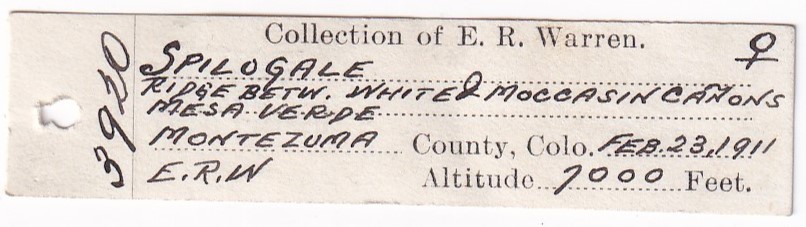 3920
Collection of E. R. Warren. ♀
SPILOGALE
RIDGE BETW. WHITE & MOCCASIN CAÑONS
MESA VERDE
MONTEZUMA County, Colo. FEB. 23, 1911
E.R.W Altitude 7000 Feet.